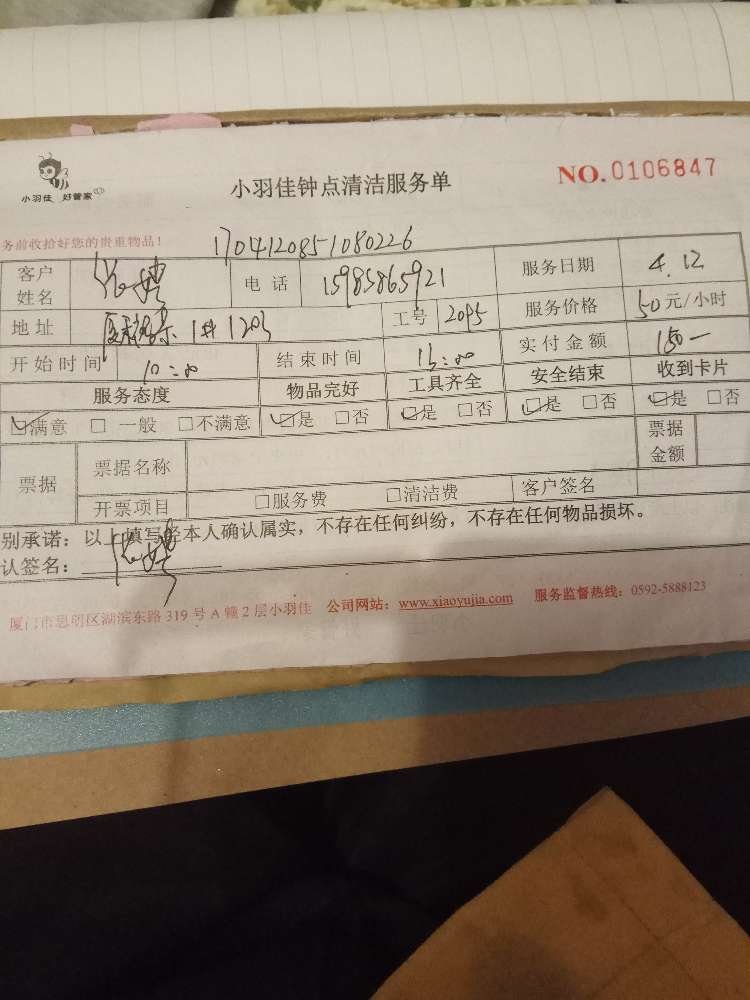 小羽佳 好管家
小羽佳钟点清洁服务单
NO.0106847
务前收拾好您的贵重物品!
1704120851080226
客户姓名 电话 15985865921 服务日期 4.12
地址 1# 1203 工号 2095 服务价格 50元/小时
开始时间 10:00 结束时间 13:00 实付金额 150一
服务态度 物品完好 工具齐全 安全结束 收到卡片
☑满意 □ 一般 □不满意 ☑是 □否 ☑是 □否 ☑是 □否 ☑是 □否
票据 票据名称 票据金额
开票项目 □服务费 □清洁费 客户签名
别承诺:以上填写经本人确认属实,不存在任何纠纷,不存在任何物品损坏。
认签名:
厦门市思明区湖滨东路 319 号 A 幢 2 层小羽佳 公司网站:www.xiaoyujia.com 服务监督热线:0592-5888123